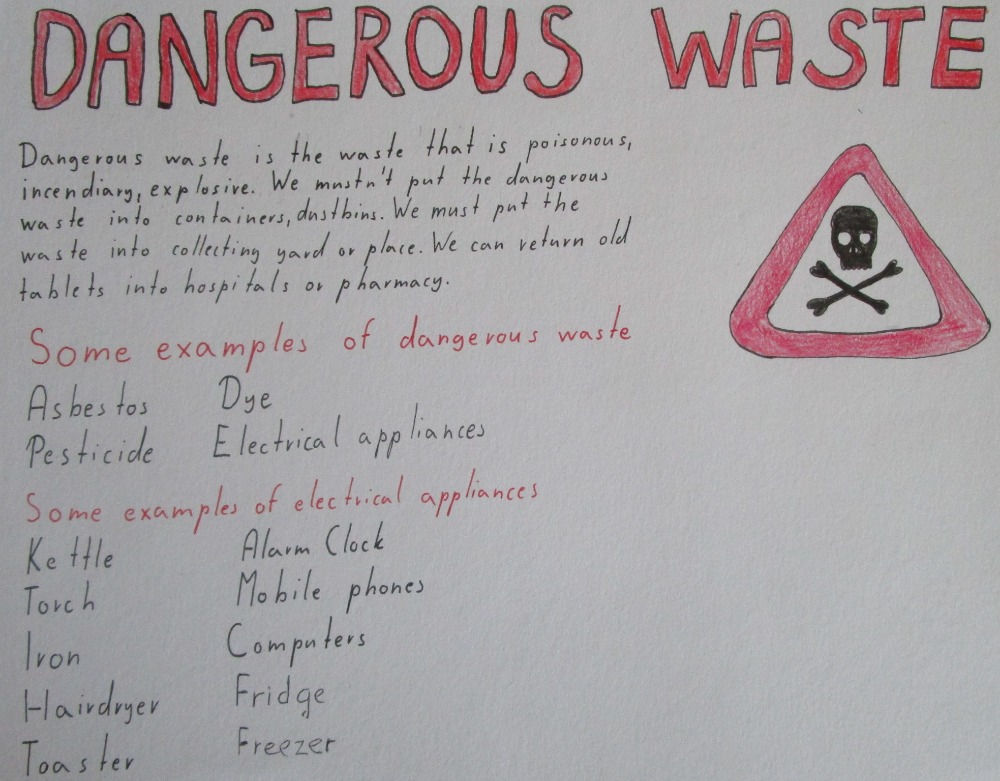 DANGEROUS WASTE
Dangerous waste is the waste that is poisonous,
incendiary, explosive. We mustn't put the dangerous
waste into containers, dustbins. We must put the
waste into collecting yard or place. We can return old
tablets into hospitals or pharmacy.
Some examples of dangerous waste
Asbestos Dye
Pesticide Electrical appliances
Some examples of electrical appliances
Kettle Alarm Clock
Torch Mobile phones
Iron Computers
Hairdryer Fridge
Toaster Freezer